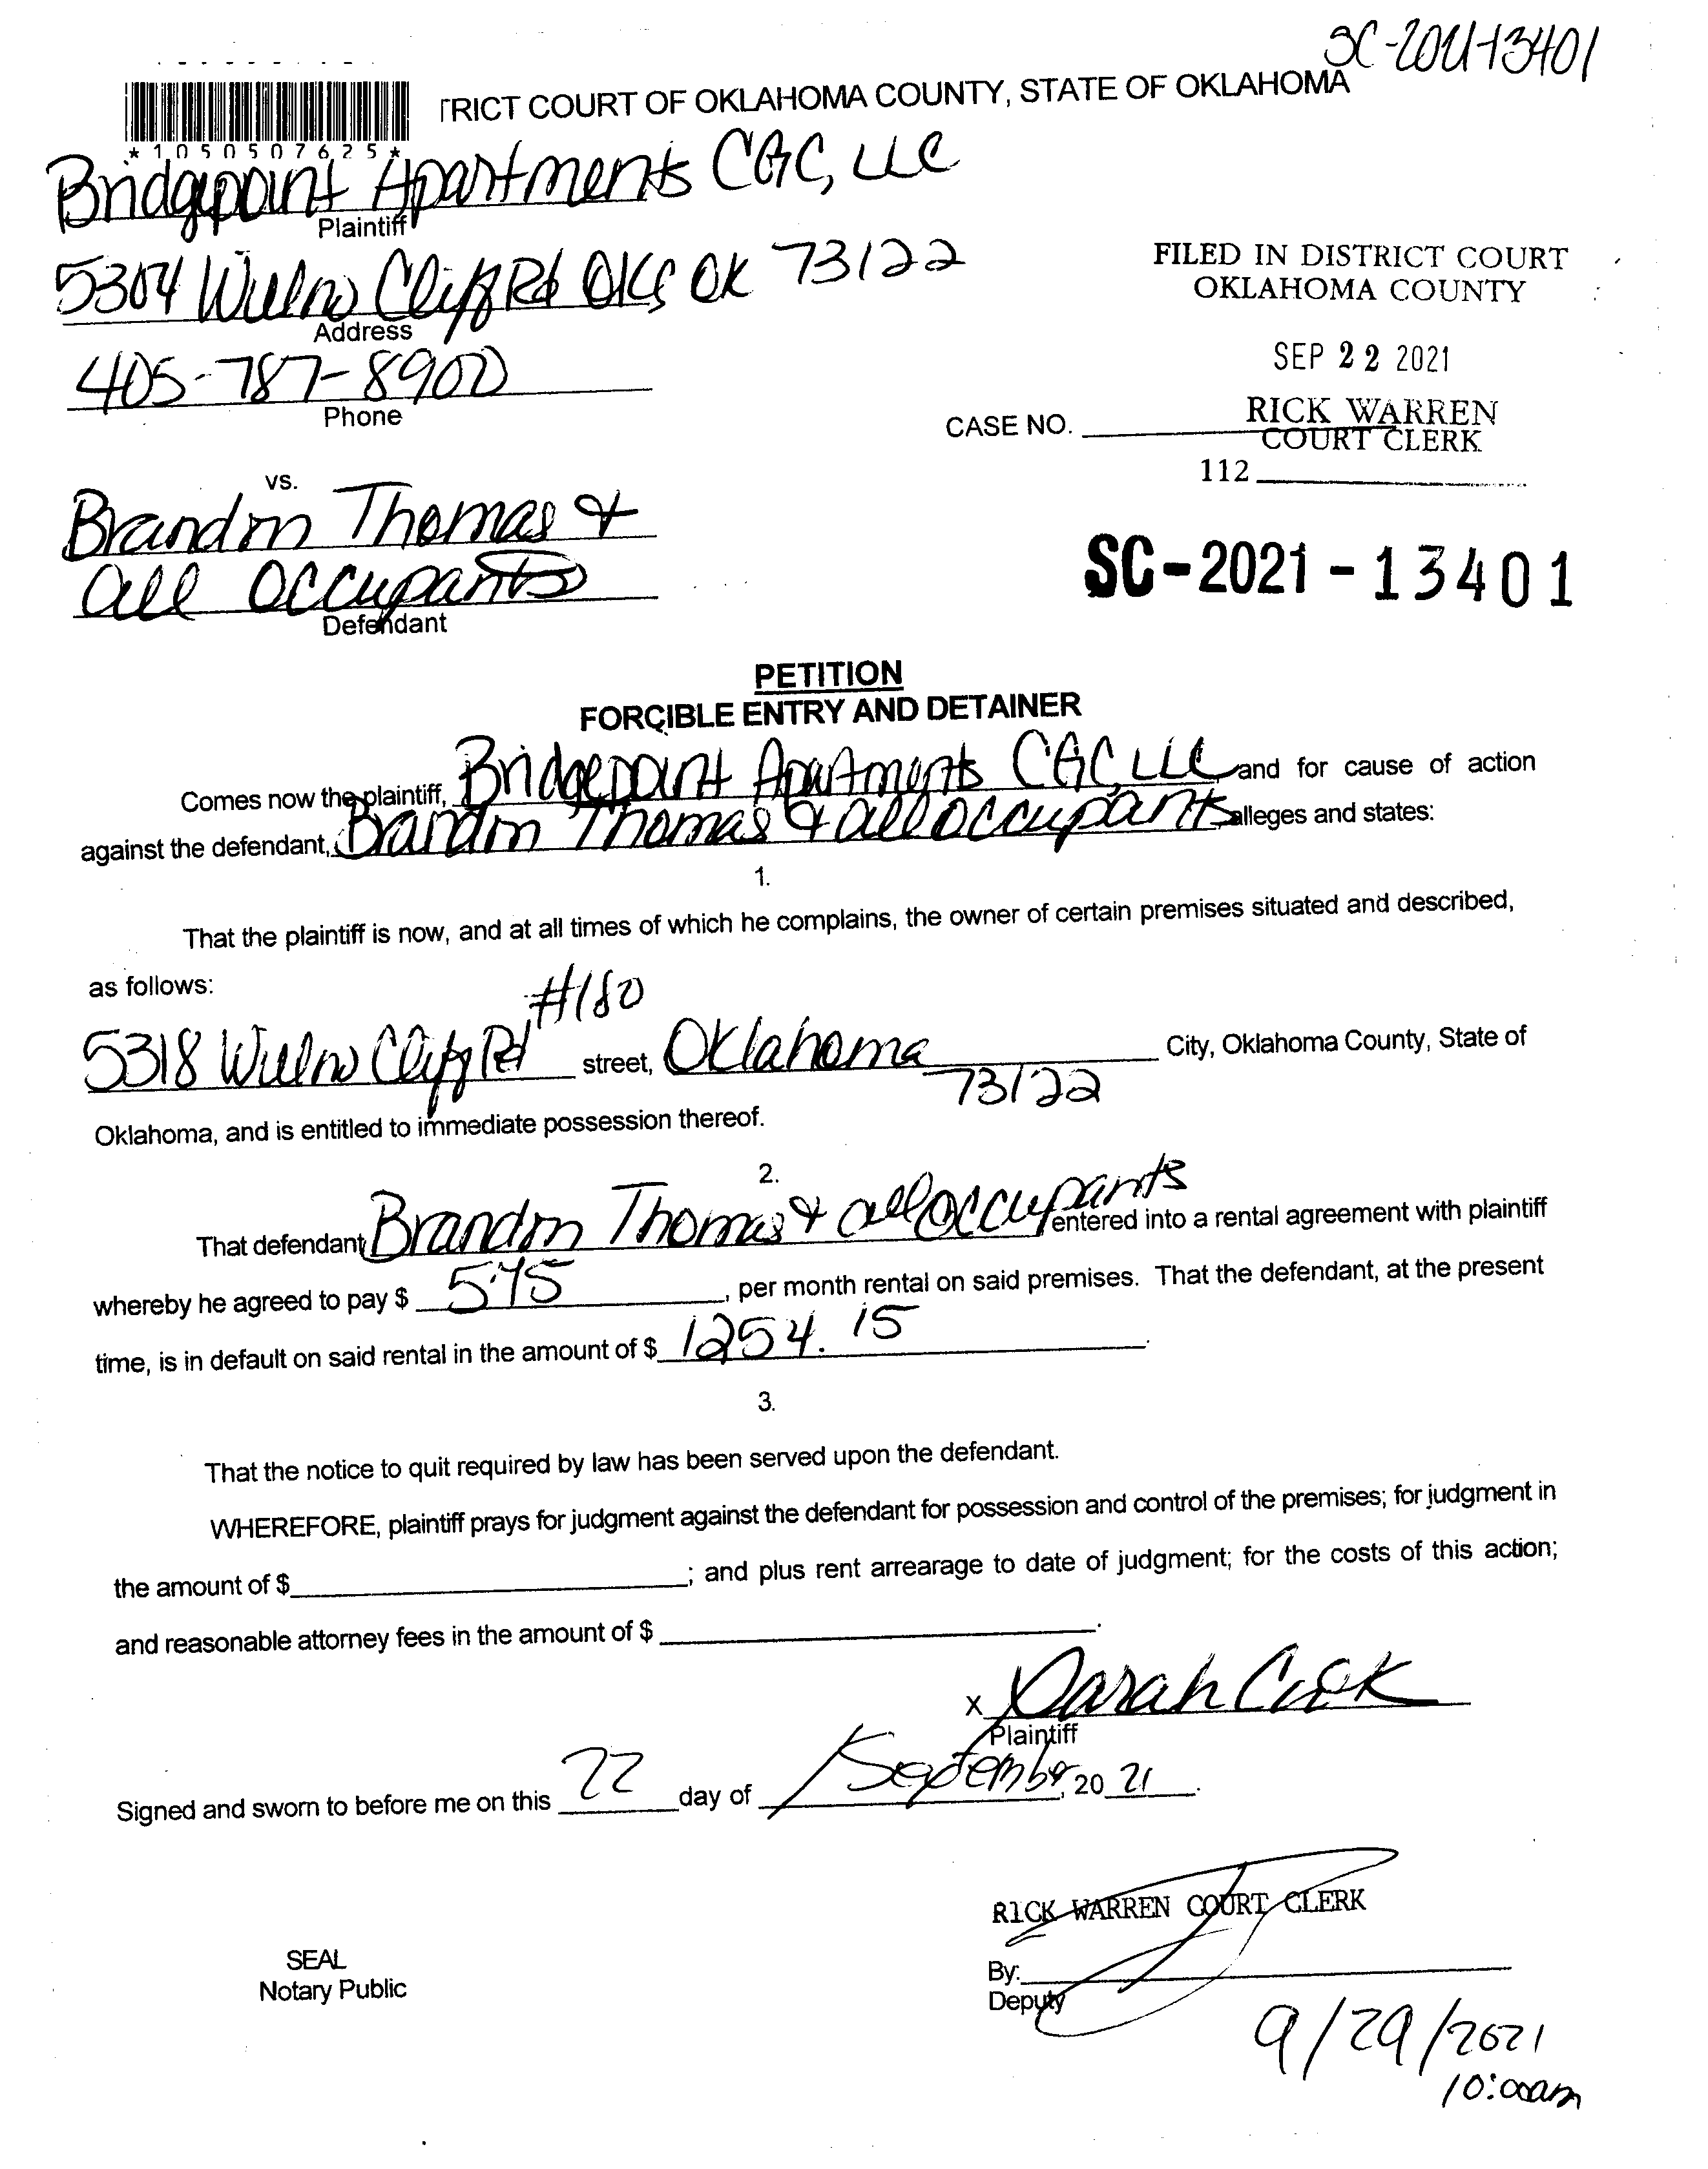 SC-2021-13401
TRICT COURT OF OKLAHOMA COUNTY, STATE OF OKLAHOMA
*1050507625*
Bridgepoint Apartments CGC, LLC
Plaintiff
5304 Willow Cliff Rd OKC OK 73122
Address
405-787-8900
Phone
FILED IN DISTRICT COURT
OKLAHOMA COUNTY
SEP 22 2021
RICK WARREN
COURT CLERK
CASE NO.
112
vs.
Brandon Thomas &
all occupants
Defendant
SC-2021-13401
PETITION
FORCIBLE ENTRY AND DETAINER
Comes now the plaintiff, Bridgepoint Apartments CGC, LLC and for cause of action
against the defendant, Brandon Thomas & all occupants, alleges and states:
1.
That the plaintiff is now, and at all times of which he complains, the owner of certain premises situated and described,
as follows:
#180
5318 Willow Cliff Rd street, Oklahoma City, Oklahoma County, State of
73122
Oklahoma, and is entitled to immediate possession thereof.
2.
That defendant Brandon Thomas & all occupants entered into a rental agreement with plaintiff
whereby he agreed to pay $ 575, per month rental on said premises. That the defendant, at the present
time, is in default on said rental in the amount of $ 1254.15.
3.
That the notice to quit required by law has been served upon the defendant.
WHEREFORE, plaintiff prays for judgment against the defendant for possession and control of the premises; for judgment in
the amount of $ ; and plus rent arrearage to date of judgment; for the costs of this action;
and reasonable attorney fees in the amount of $ .
X Sarah Cook
Plaintiff
Signed and sworn to before me on this 22 day of September, 20 21.
RICK WARREN COURT CLERK
SEAL
Notary Public
By:
Deputy
9/29/2021
10:00am